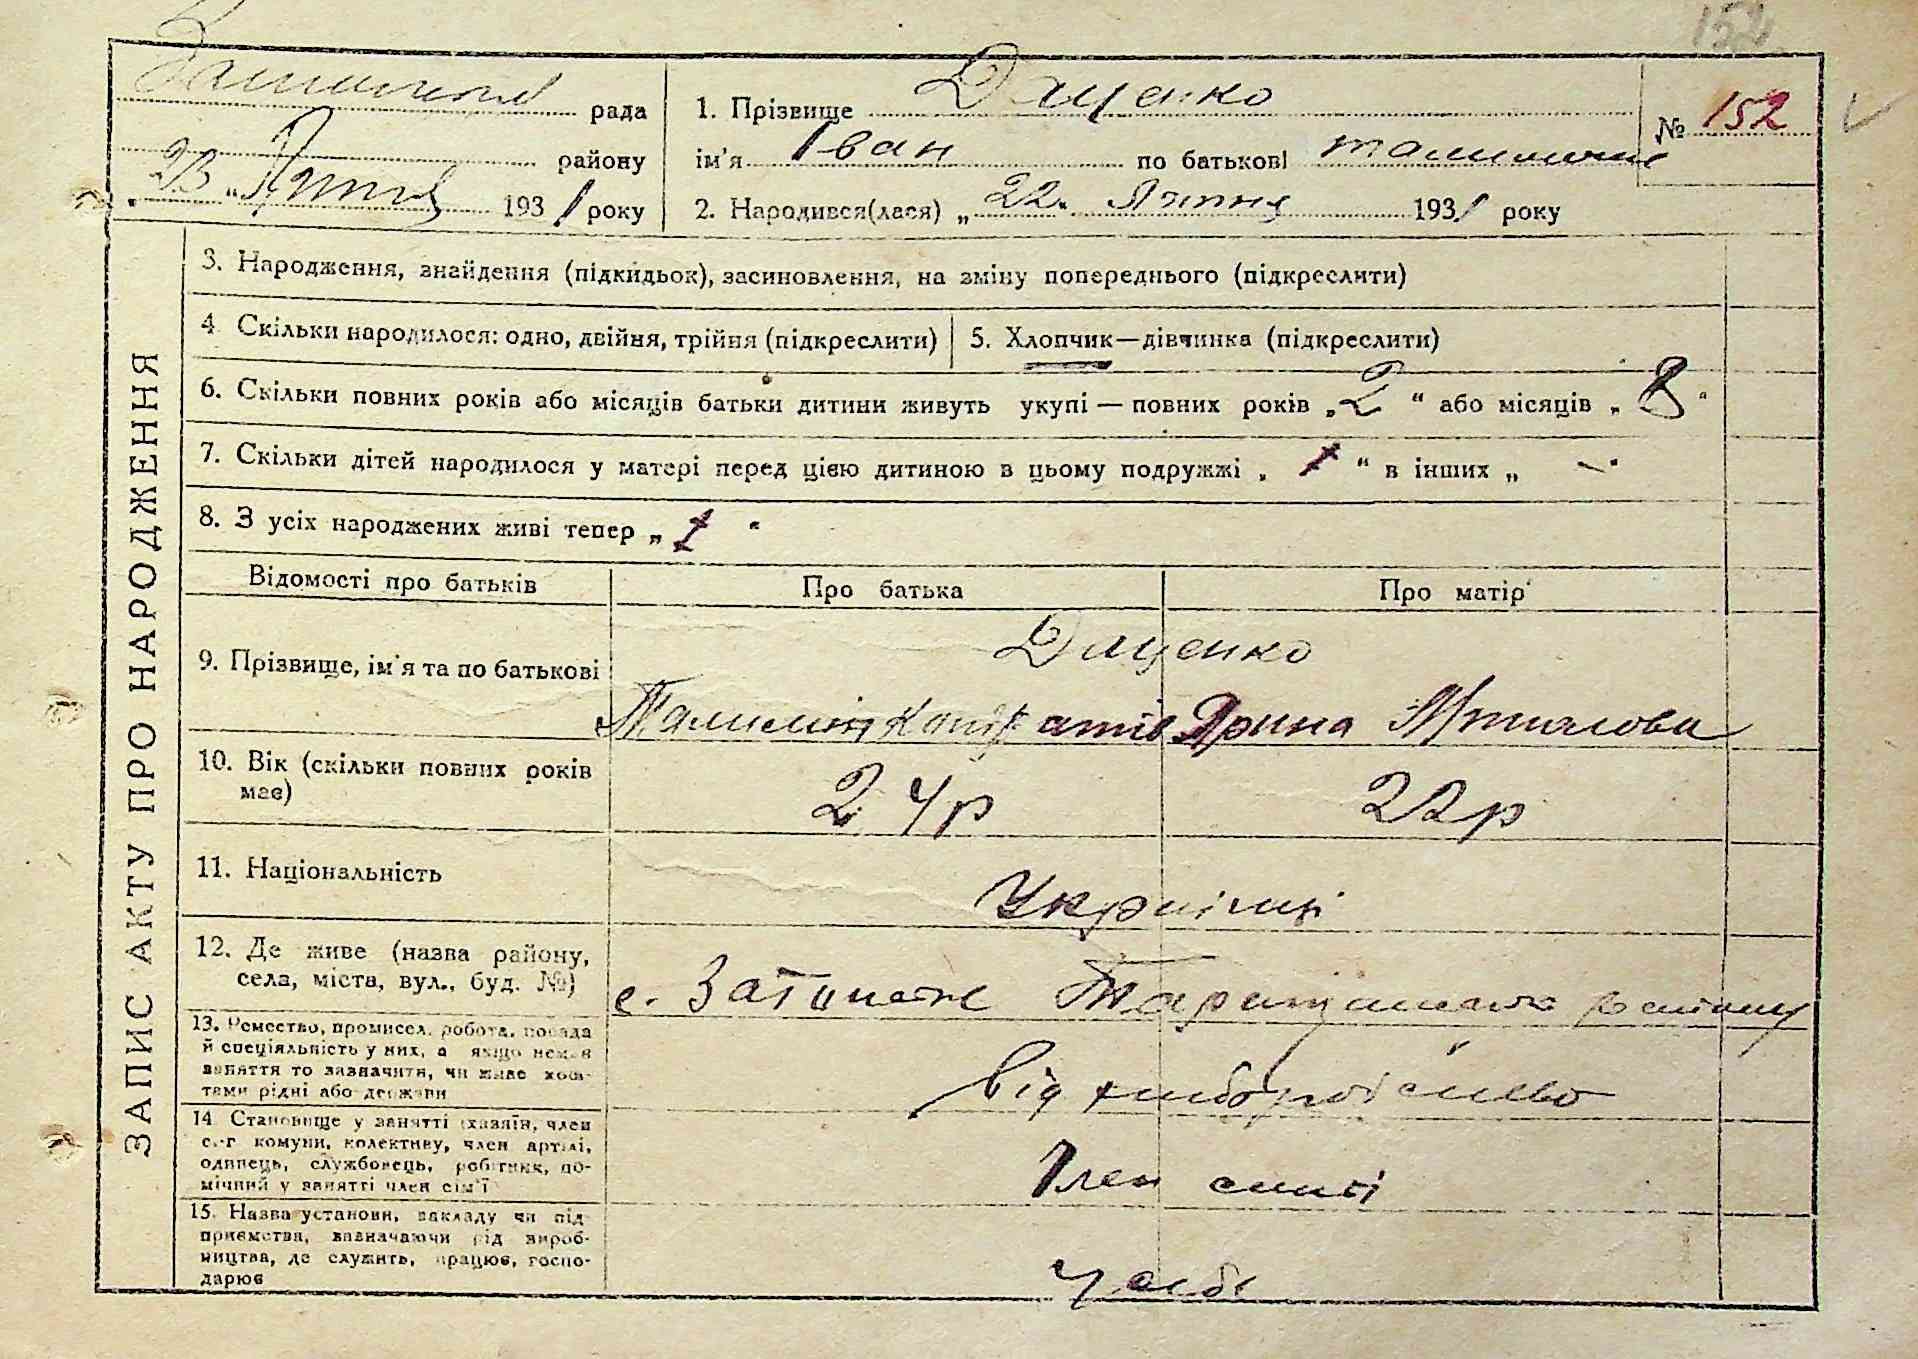 152
рада
1. Прізвище Даценко
№ 152
району
ім'я Іван по батькові
23 " 193 1 року
2. Народився(лася) „ 22 " 193 1 року
ЗАПИС АКТУ ПРО НАРОДЖЕННЯ
3. Народження, знайдення (підкидьок), засиновлення, на зміну попереднього (підкреслити)
4 Скільки народилося: одно, двійня, трійня (підкреслити)
5. Хлопчик—дівчинка (підкреслити)
6. Скільки повних років або місяців батьки дитини живуть укупі — повних років „ 2 " або місяців „ 8 "
7. Скільки дітей народилося у матері перед цією дитиною в цьому подружжі „ 1 " в інших „ – "
8. З усіх народжених живі тепер „ 1 "
Відомості про батьків
Про батька
Про матір
9. Прізвище, ім'я та по батькові
Даценко
Ярина
10. Вік (скільки повних років
має)
24р
22р
11. Національність
Українці
12. Де живе (назва району,
села, міста, вул., буд. №)
с.
13. Ремество, промисел, робота, посада
й спеціяльність у них, а якщо немає
заняття то зазначити, чи живе кош-
тами рідні або держави
Від
14 Становище у занятті (хазяїн, член
с.-г комуни, колективу, член артілі,
одинець, службовець, робітник, по-
мічний у занятті член сім'ї
Член
15. Назва установи, закладу чи під-
приємства, зазначаючи рід вироб-
ництва, де служить, працює, госпо-
дарює
У себе